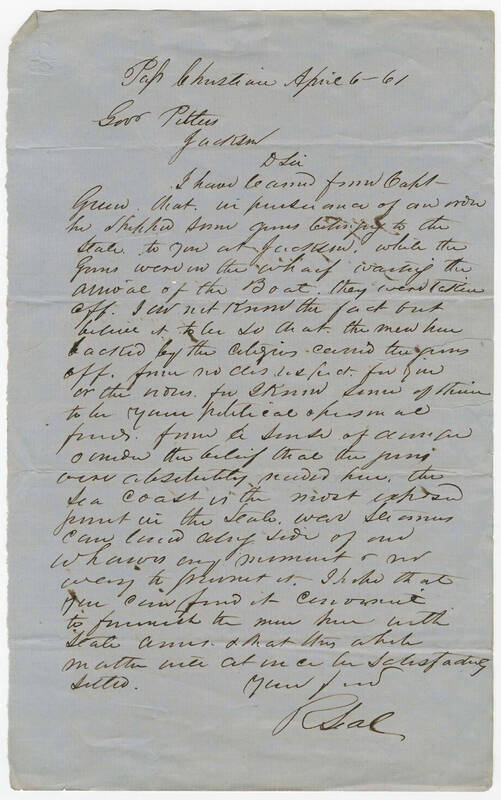 Pass Christian April 6-61
Govr Pettus
Jackson
D Sir
I have learned from Capt-
Green. that. in persuance of an order
he shipped some guns belonging to the
State to you at Jackson, while the
Guns were on the wharf waiting the
arrival of the Boat. they were taken
off. I do not Know the fact but
believe it to be so that the men here
backed by the citizens carried the guns
off. from no disrespect. for you
or the order. for I Know some of them
to be your political & personal
friends. from a sense of danger
& under the belief that the guns
were absolutely needed here. the
Sea Coast is the most exposed
point in the State. war Steamers
can land any side of our
wharves any moment & no
way to prevent it. I hope that
you can find it convenient
to furnish the men here with
State arms. & that this whole
matter will at once be Satisfactorily
Settled.
Your friend
R Seal